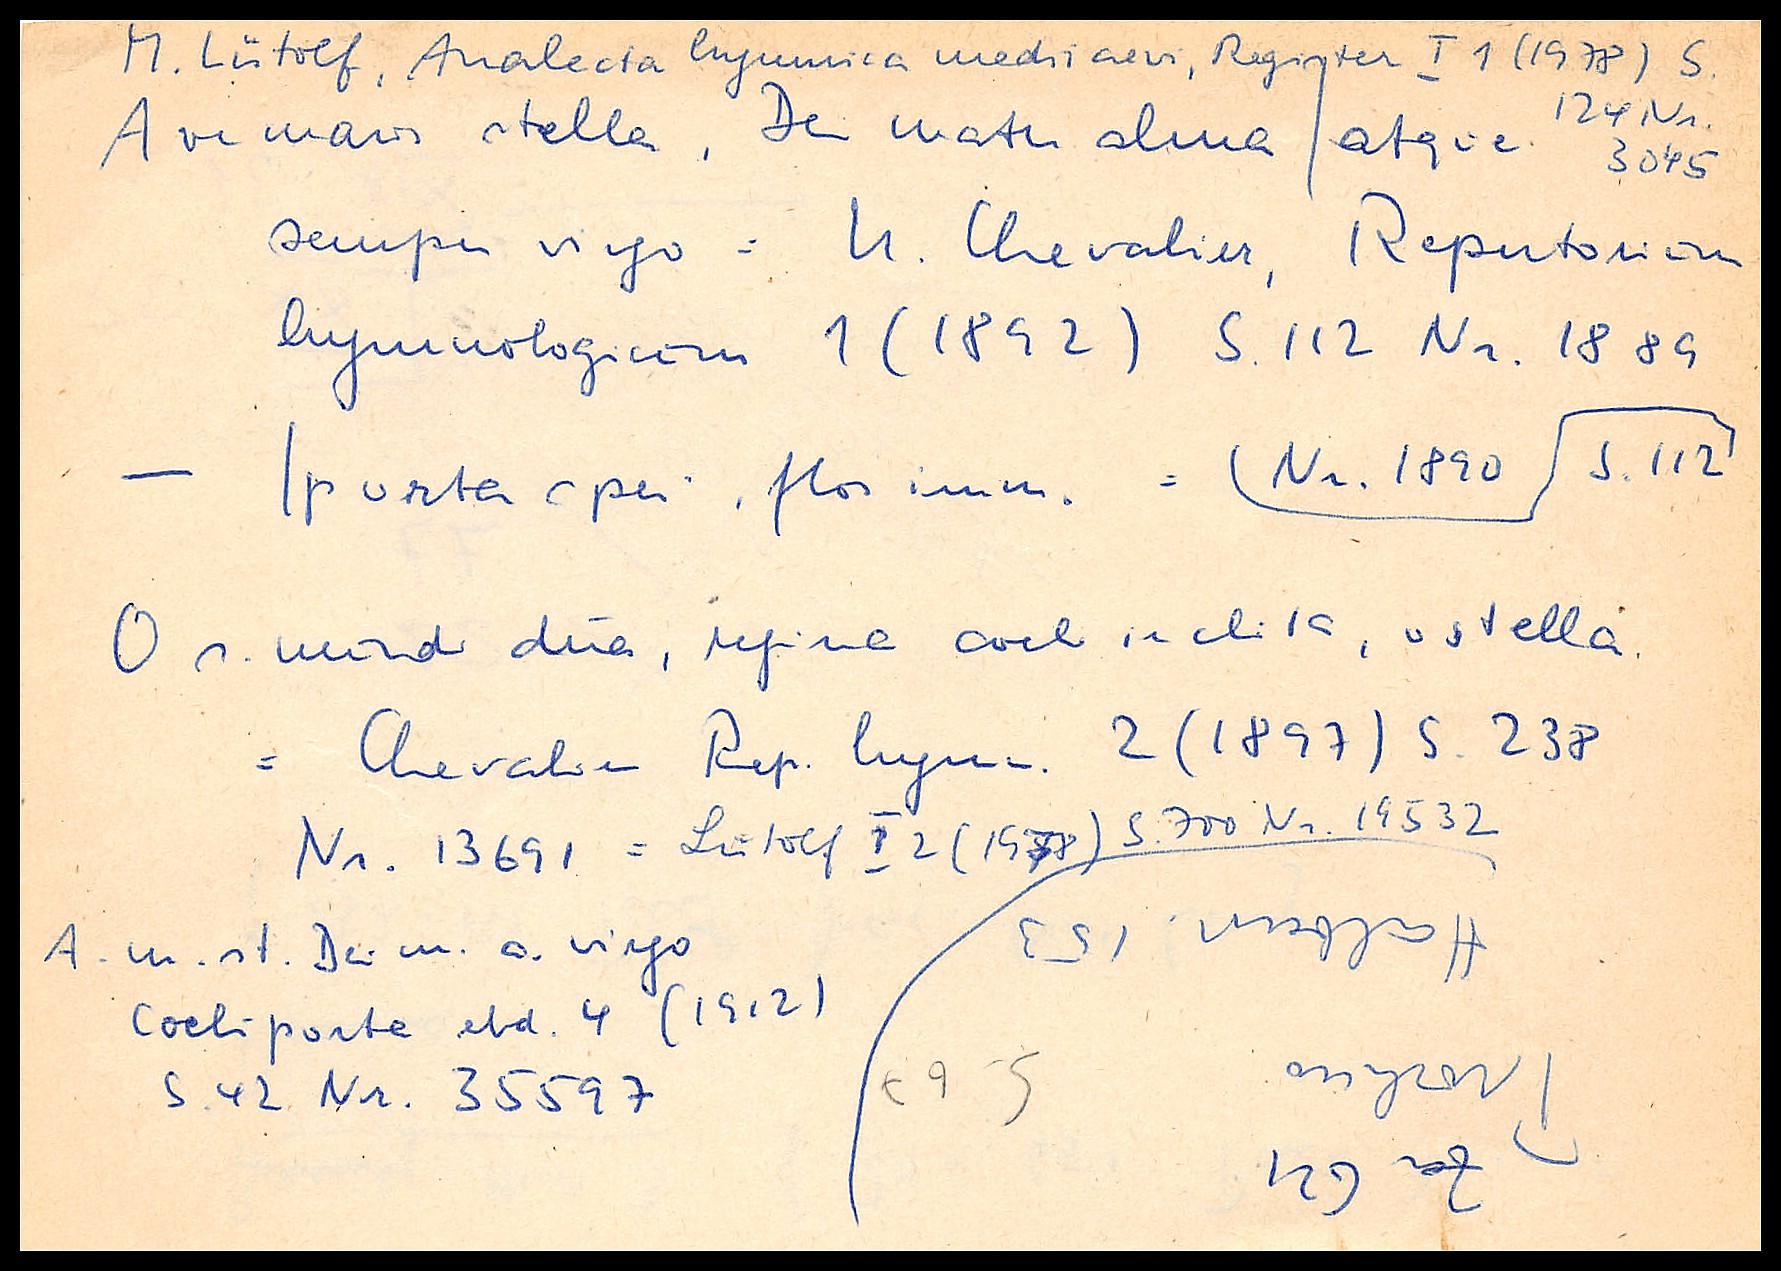 M. Lütolf, Analecta hymnica medii aevi, Register I 1 (1978) S.
124 Nr.
3045
Ave maris stella, Dei mater alma / atque
semper virgo = U. Chevalier, Repertorium
hymnologicum 1 (1892) S. 112 Nr. 1889
— / porta spei, flos imm. = (Nr. 1890 S. 112
O s. mundi dña, regina coeli inclita, o stella.
= Chevalier Rep. hymn. 2 (1897) S. 238
Nr. 13691 = Lütolf I 2 (1978) S. 700 Nr. 19532
A. m. st. Dei m. a. virgo
Coeli porta ebd. 4 (1912)
S. 42 Nr. 35597
Halbern 153
S. 63
Za 621